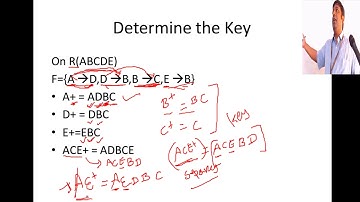 Determine the Key
On R(ABCDE)
F={A→D,D→B,B→C,E→B}
• A+ = ADBC
• D+ = DBC
• E+=EBC
• ACE+ = ADBCE
B+ = BC
C+ = C
Key
→ ACEBD
(ACE+) = ACEBD
AE+ = AEDBC